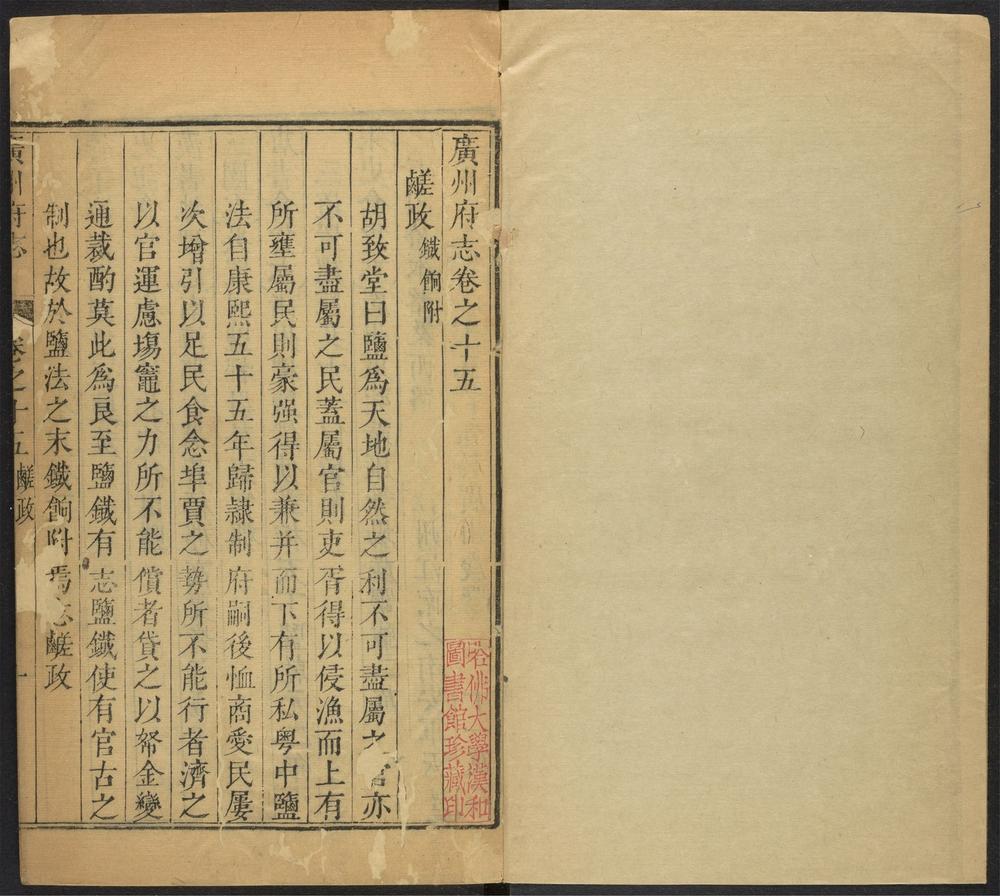 廣州府志卷之十五
鹺政 鐵餉附
胡致堂曰鹽爲天地自然之利不可盡屬之官亦
不可盡屬之民蓋屬官則吏胥得以侵漁而上有
所壅屬民則豪强得以兼并而下有所私粤中鹽
法自康熙五十五年歸隷制府嗣後恤商愛民屢
次增引以足民食念埠賈之勢所不能行者濟之
以官運慮塲竈之力所不能償者貸之以帑金變
通裁酌莫此爲良至鹽鐵有志鹽鐵使有官古之
制也故於鹽法之末鐵餉附焉志鹺政
廣州府志 卷之十五 鹺政 一
哈佛大學漢和
圖書館珍藏印